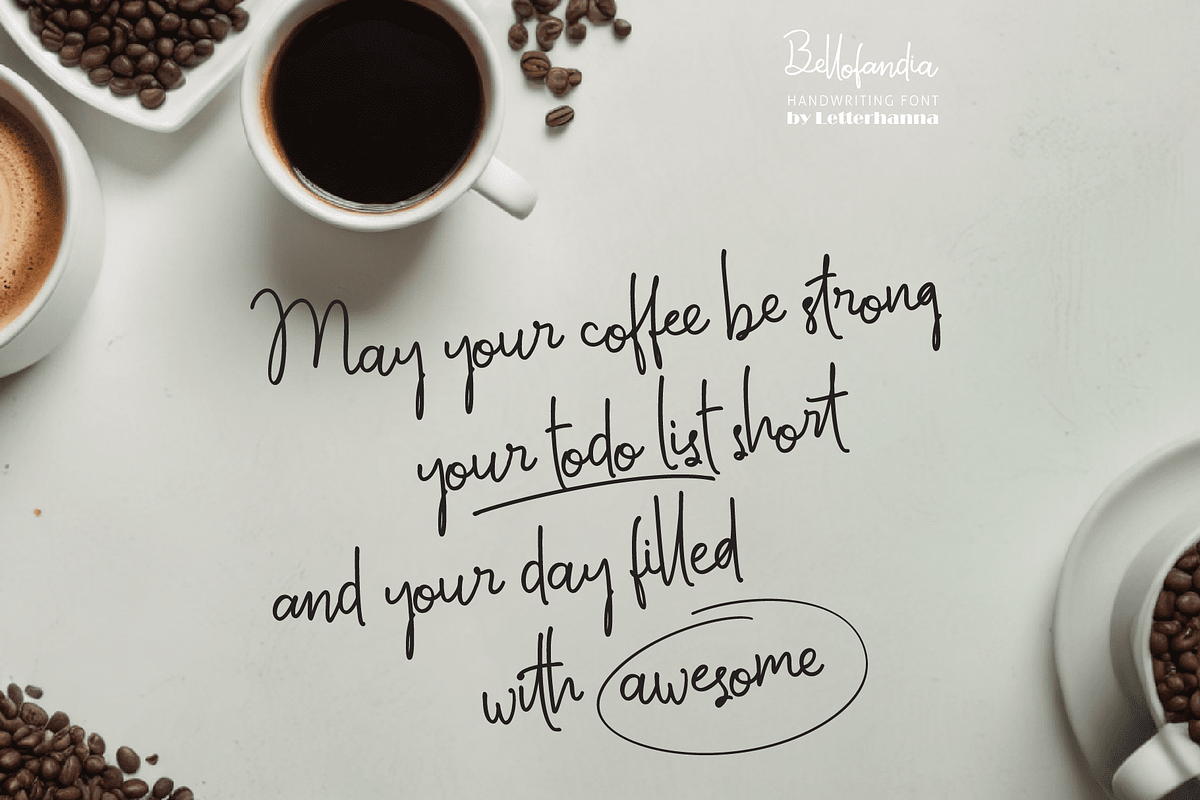 Bellofandia
HANDWRITING FONT
by Letterhanna
May your coffee be strong
your todo list short
and your day filled
with awesome